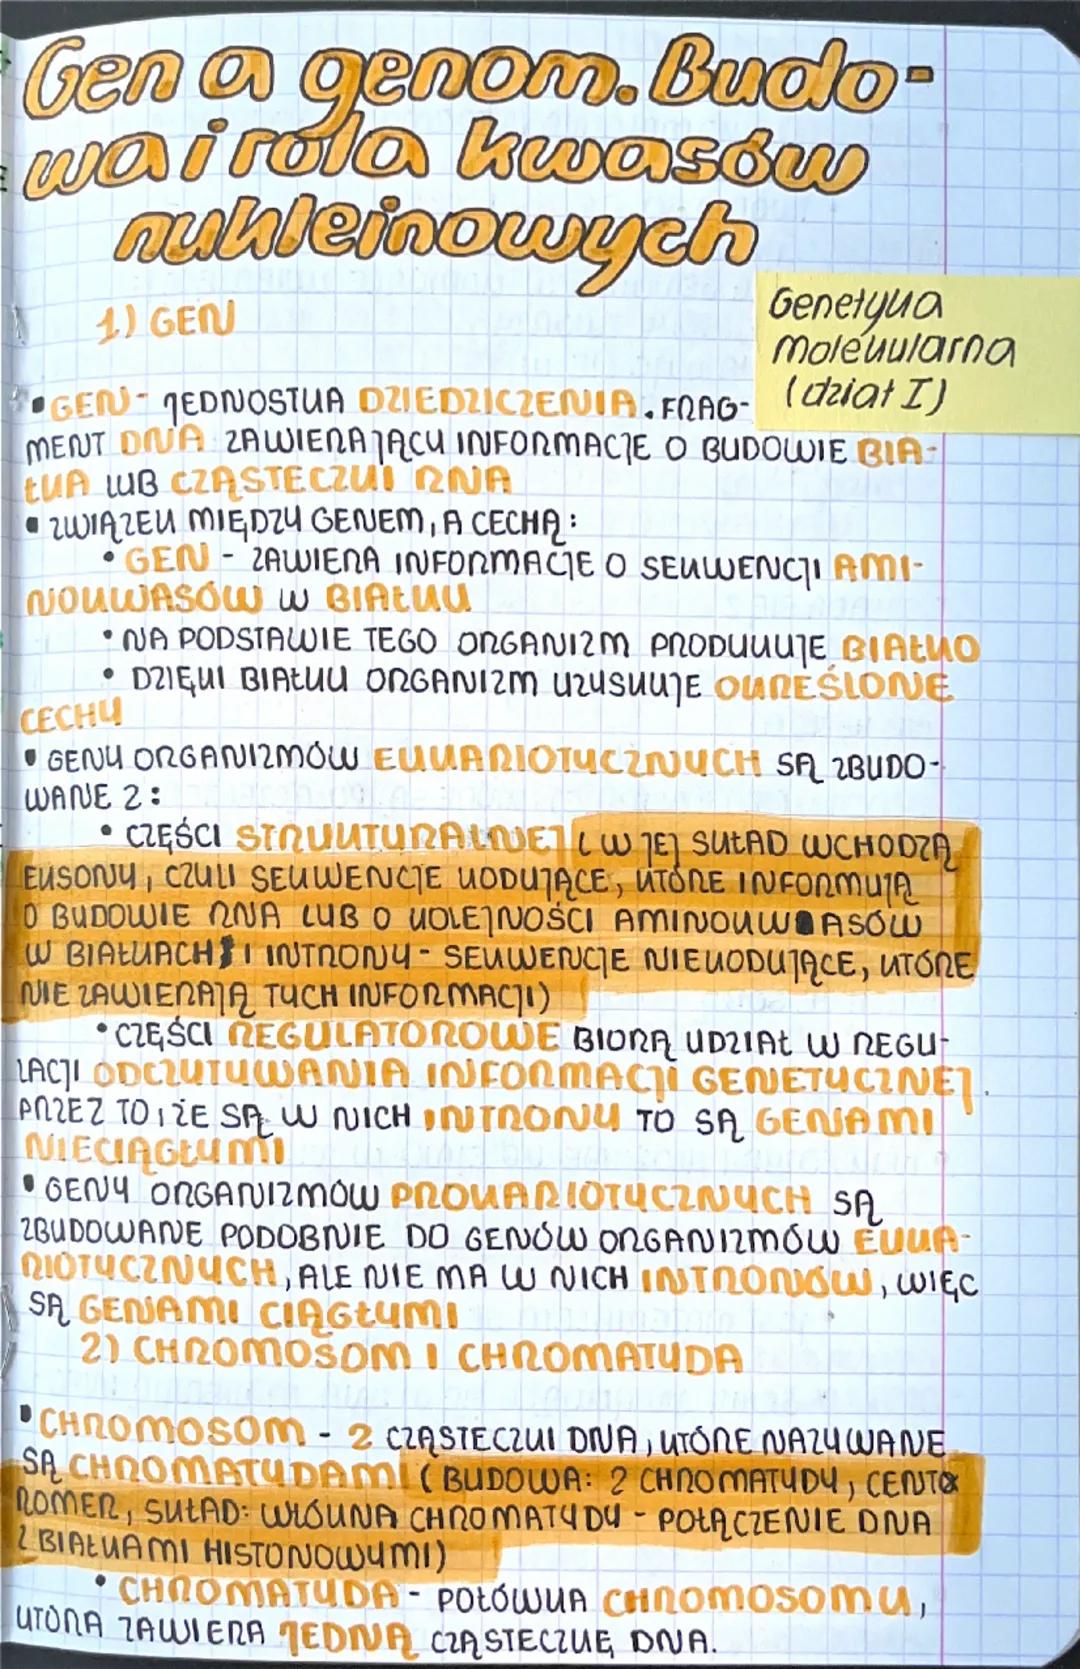 Gen a genom. Budo-
wa i rola kwasów
nukleinowych
Genetyka
molekularna
(dział I)
1) GEN
• GEN - JEDNOSTKA DZIEDZICZENIA. FRAG-
MENT DNA ZAWIERAJĄCY INFORMACJE O BUDOWIE BIA-
ŁKA LUB CZĄSTECZKI RNA
• ZWIĄZEK MIĘDZY GENEM, A CECHĄ:
• GEN - ZAWIERA INFORMACJE O SEKWENCJI AMI-
NOKWASÓW W BIAŁKU
• NA PODSTAWIE TEGO ORGANIZM PRODUKUJE BIAŁKO
• DZIĘKI BIAŁKU ORGANIZM UZYSKUJE OKREŚLONE
CECHY
• GENY ORGANIZMÓW EUKARIOTYCZNYCH SĄ ZBUDO-
WANE Z:
• CZĘŚCI STRUKTURALNEJ (W JEJ SKŁAD WCHODZĄ
EKSONY, CZYLI SEKWENCJE KODUJĄCE, KTÓRE INFORMUJĄ
O BUDOWIE RNA LUB O KOLEJNOŚCI AMINOKWASÓW
W BIAŁKACH I INTRONY - SEKWENCJE NIEKODUJĄCE, KTÓRE
NIE ZAWIERAJĄ TYCH INFORMACJI)
• CZĘŚCI REGULATOROWE BIORĄ UDZIAŁ W REGU-
LACJI ODCZYTYWANIA INFORMACJI GENETYCZNEJ.
PRZEZ TO, ŻE SĄ W NICH INTRONY TO SĄ GENAMI
NIECIĄGŁYMI
• GENY ORGANIZMÓW PROKARIOTYCZNYCH SĄ
ZBUDOWANE PODOBNIE DO GENÓW ORGANIZMÓW EUKA-
RIOTYCZNYCH, ALE NIE MA W NICH INTRONÓW, WIĘC
SĄ GENAMI CIĄGŁYMI
2) CHROMOSOM I CHROMATYDA
• CHROMOSOM - 2 CZĄSTECZKI DNA, KTÓRE NAZYWANE
SĄ CHROMATYDAMI (BUDOWA: 2 CHROMATYDY, CENT
ROMER, SKŁAD: WŁÓKNA CHROMATYDY - POŁĄCZENIE DNA
Z BIAŁKAMI HISTONOWYMI)
• CHROMATYDA - POŁÓWKA CHROMOSOMU,
KTÓRA ZAWIERA JEDNĄ CZĄSTECZKĘ DNA.